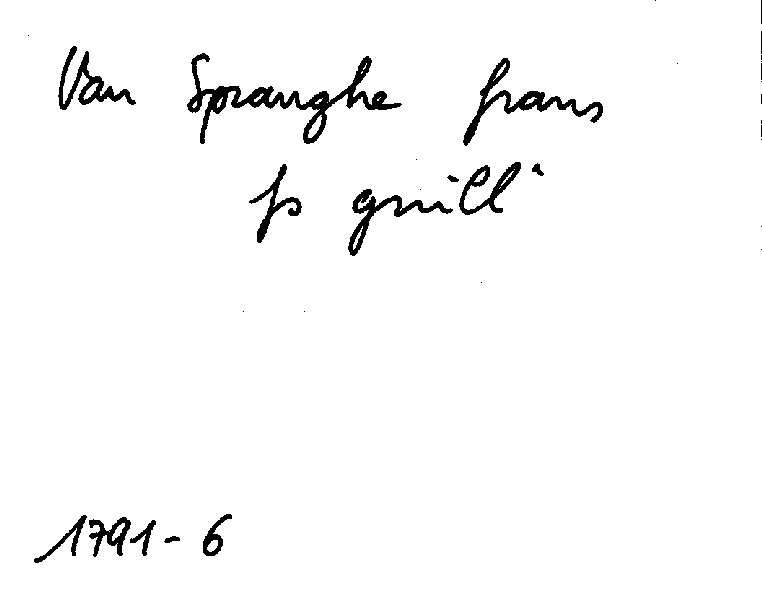 Van Spranghe frans
fs guill'
1791-6